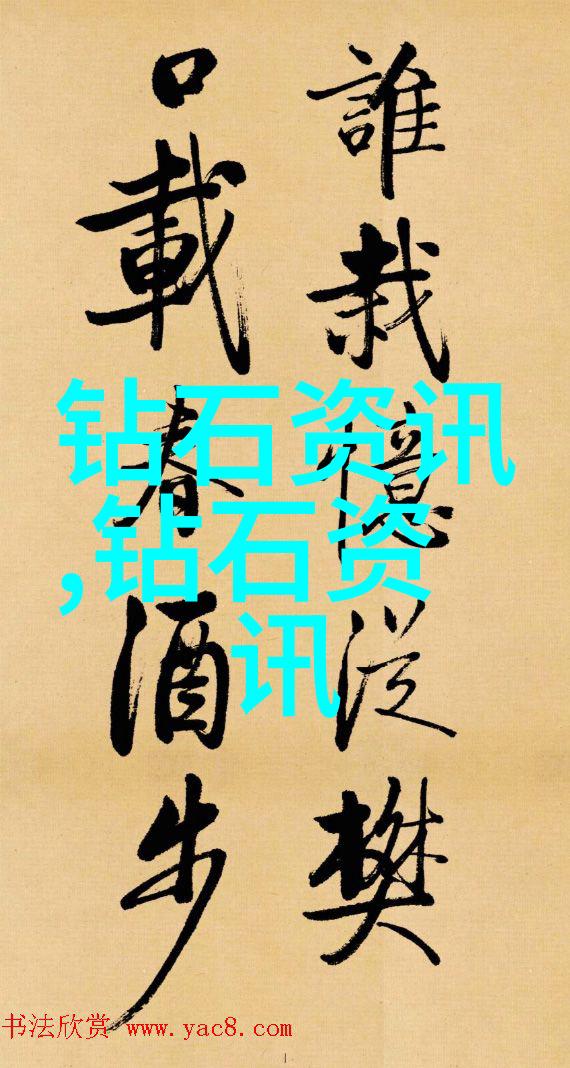 誰栽憶從樊
口載春酒步
钻石资讯
,钻石资
讯
书法欣赏 www.yac8.com